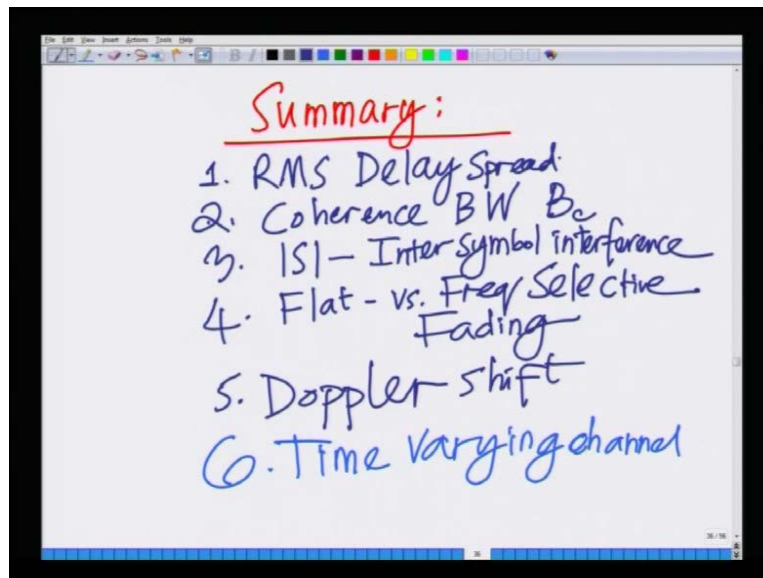 File Edit View Insert Actions Tools Help
Summary:
1. RMS Delay Spread.
2. Coherence BW Bc
3. ISI - Inter symbol interference
4. Flat - vs. Freq Selective
Fading
5. Doppler shift
6. Time varying channel
36/36
36